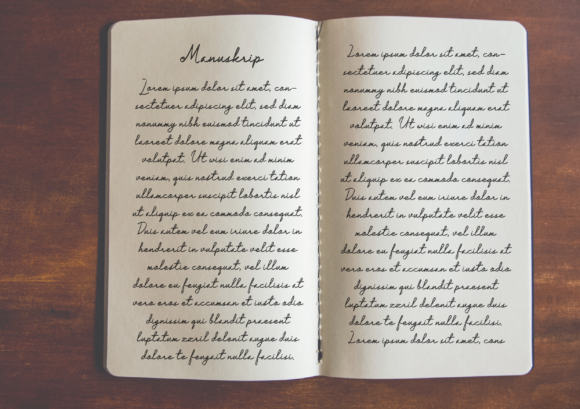 Manuskrip
Lorem ipsum dolor sit amet, con-
sectetuer adipiscing elit, sed diam
nonummy nibh euismod tincidunt ut
laoreet dolore magna aliquam erat
volutpat. Ut wisi enim ad minim
veniam, quis nostrud exerci tation
ullamcorper suscipit lobortis nisl
ut aliquip ex ea commodo consequat.
Duis autem vel eum iriure dolor in
hendrerit in vulputate velit esse
molestie consequat, vel illum
dolore eu feugiat nulla facilisis at
vero eros et accumsan et iusto odio
dignissim qui blandit praesent
luptatum zzril delenit augue duis
dolore te feugait nulla facilisi.
Lorem ipsum dolor sit amet, con-
sectetuer adipiscing elit, sed diam
nonummy nibh euismod tincidunt ut
laoreet dolore magna aliquam erat
volutpat. Ut wisi enim ad minim
veniam, quis nostrud exerci tation
ullamcorper suscipit lobortis nisl
ut aliquip ex ea commodo consequat.
Duis autem vel eum iriure dolor in
hendrerit in vulputate velit esse
molestie consequat, vel illum
dolore eu feugiat nulla facilisis at
vero eros et accumsan et iusto odio
dignissim qui blandit praesent
luptatum zzril delenit augue duis
dolore te feugait nulla facilisi.
Lorem ipsum dolor sit amet, cons